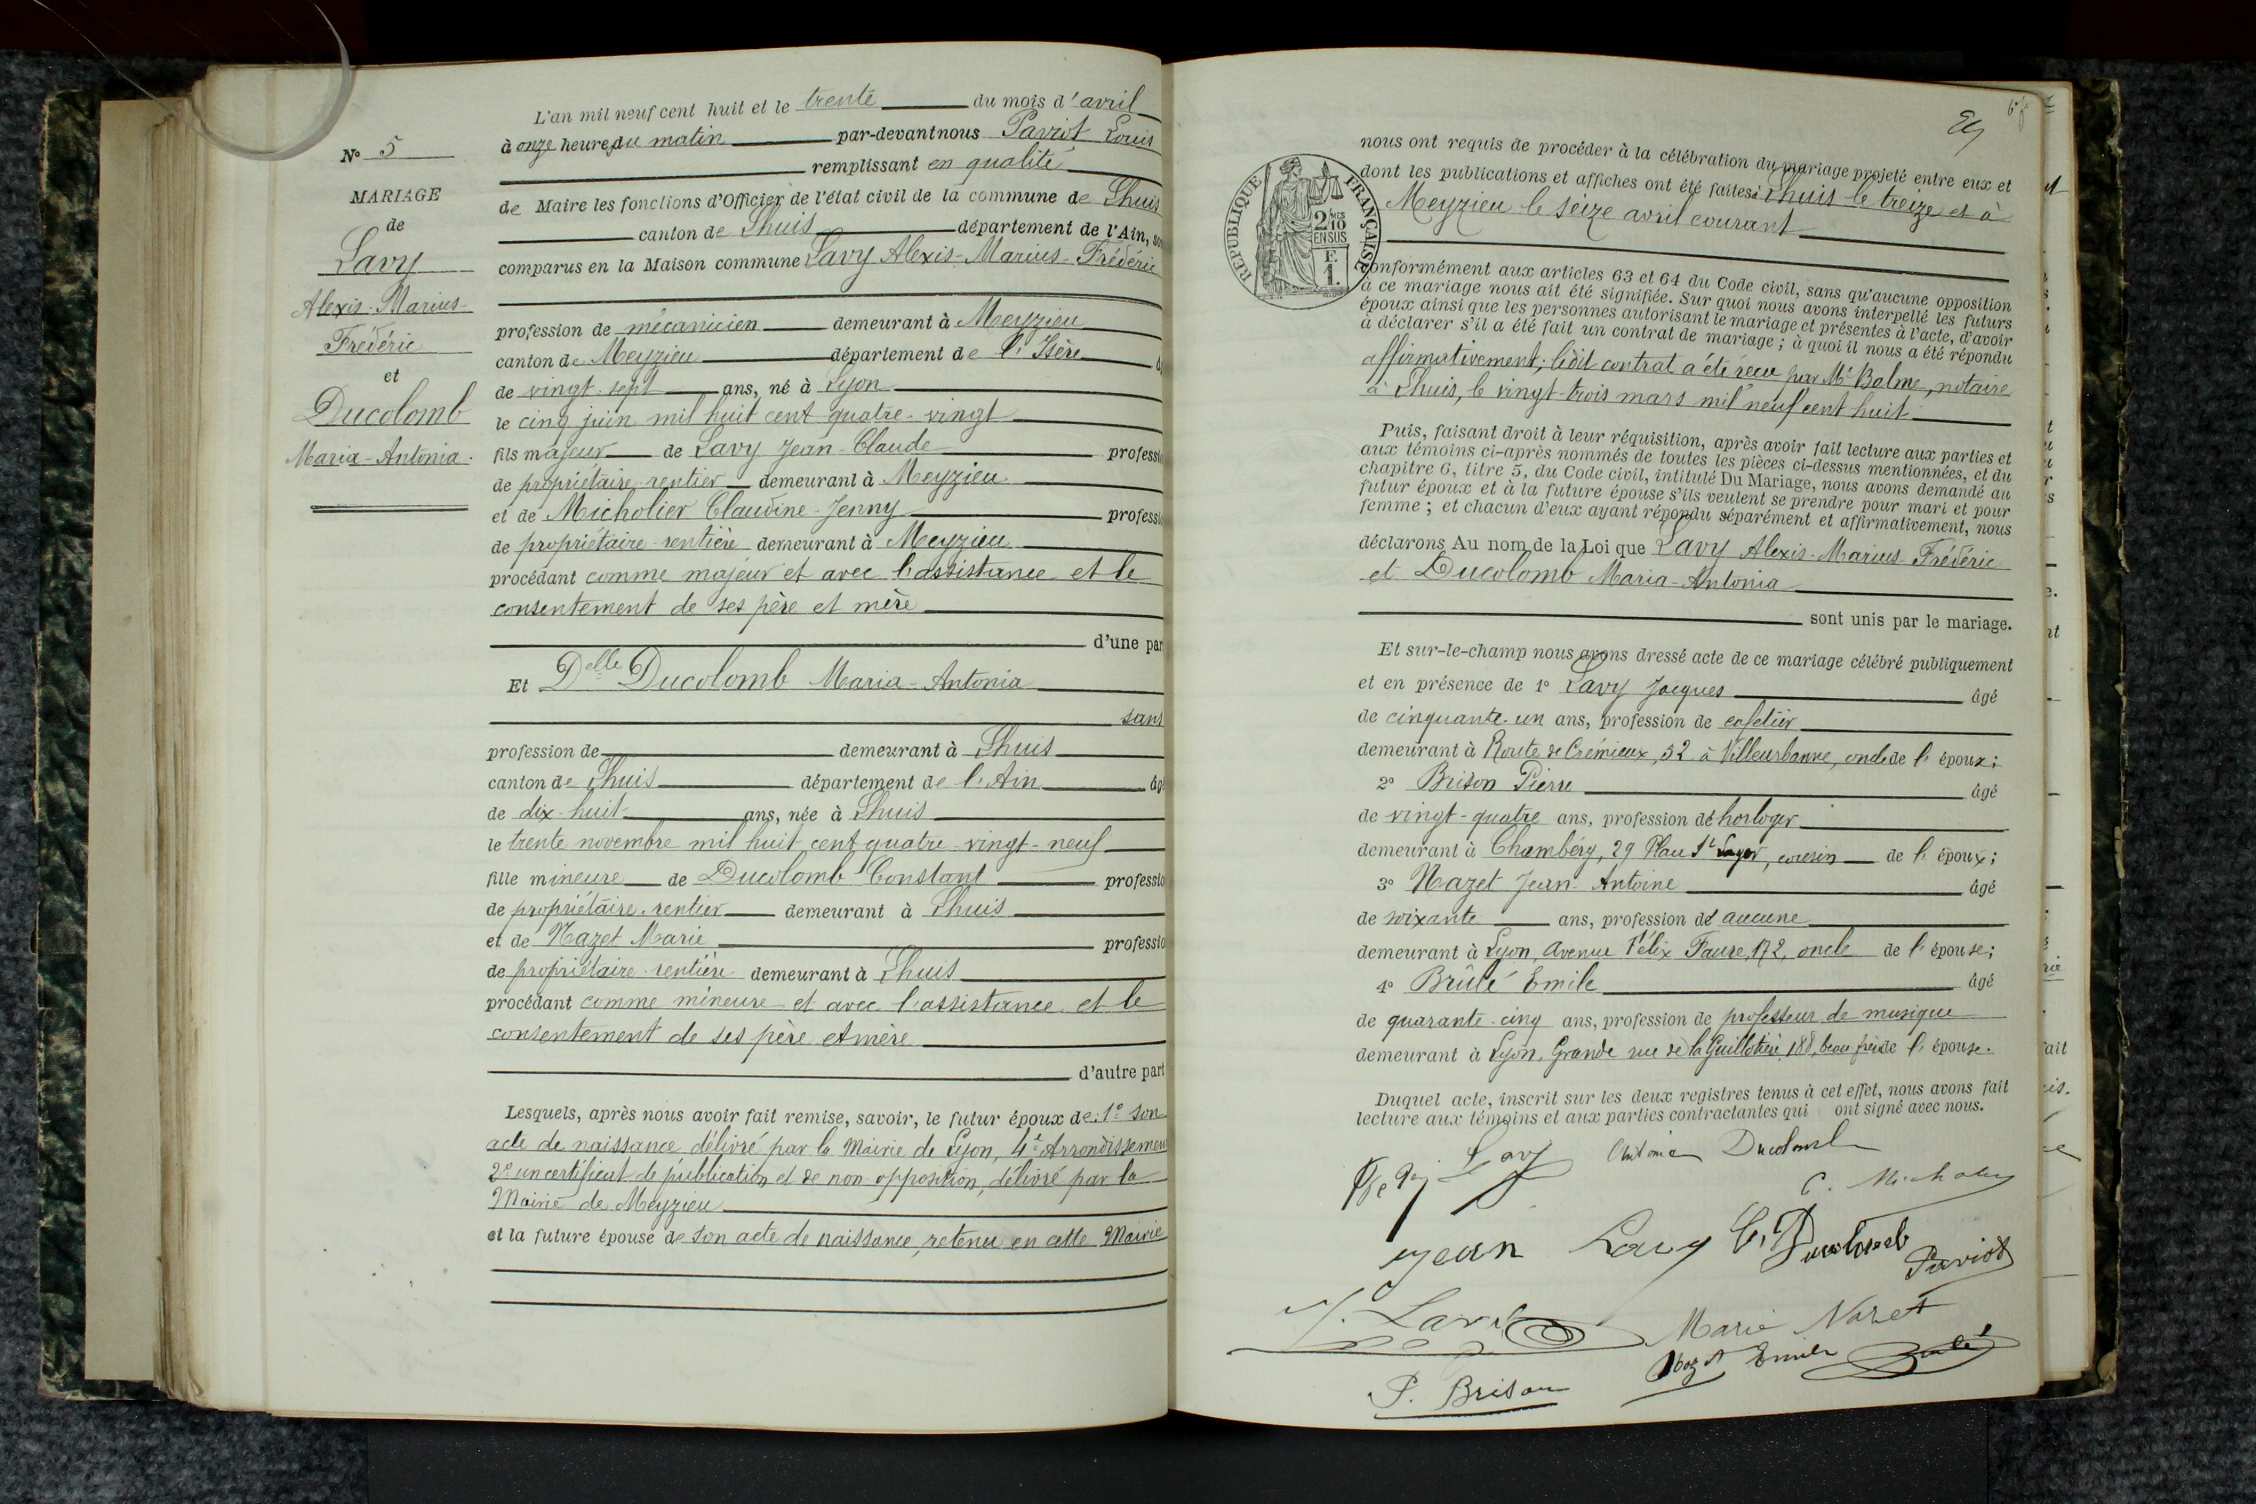 N° 5
MARIAGE
de
Lavy
Alexis-Marius-
Frédéric
et
Ducolomb
Maria-Antonia.
L'an mil neuf cent huit et le trente du mois d'avril
à onze heures du matin par-devant nous Paviot Louis
remplissant en qualité
de Maire les fonctions d'Officier de l'état civil de la commune de Lhuis
canton de Lhuis département de l'Ain, so
comparus en la Maison commune Lavy Alexis-Marius-Frédéric
profession de mécanicien demeurant à Meyzieu
canton de Meyzieu département de l'Isère
de vingt-sept ans, né à Lyon
le cinq juin mil huit cent quatre-vingt
fils majeur de Lavy Jean-Claude professi
de propriétaire-rentier demeurant à Meyzieu
et de Micholier Claudine-Jenny professi
de propriétaire-rentière demeurant à Meyzieu
procédant comme majeur et avec l'assistance et le
consentement de ses père et mère
d'une par
Et Delle Ducolomb Maria-Antonia
sans
profession de demeurant à Lhuis
canton de Lhuis département de l'Ain âg
de dix-huit ans, née à Lhuis
le trente novembre mil huit cent quatre-vingt-neuf
fille mineure de Ducolomb Constant professio
de propriétaire-rentier demeurant à Lhuis
et de Nazet Marie professio
de propriétaire-rentière demeurant à Lhuis
procédant comme mineure et avec l'assistance et le
consentement de ses père et mère
d'autre part
Lesquels, après nous avoir fait remise, savoir, le futur époux de: 1° son
acte de naissance, délivré par la Mairie de Lyon, 4e Arrondissemen
2° un certificat de publication et de non opposition, délivré par la
Mairie de Meyzieu
et la future épouse de son acte de naissance, retenu en cette Mairie
RÉPUBLIQUE FRANÇAISE
2/10
EN SUS
F.
1.
nous ont requis de procéder à la célébration du mariage projeté entre eux et
dont les publications et affiches ont été faites à Lhuis le treize et à
Meyzieu le seize avril courant
conformément aux articles 63 et 64 du Code civil, sans qu'aucune opposition
à ce mariage nous ait été signifiée. Sur quoi nous avons interpellé les futurs
époux ainsi que les personnes autorisant le mariage et présentes à l'acte, d'avoir
à déclarer s'il a été fait un contrat de mariage; à quoi il nous a été répondu
affirmativement; ledit contrat a été reçu par Me Balme, notaire
à Lhuis, le vingt-trois mars mil neuf cent huit
Puis, faisant droit à leur réquisition, après avoir fait lecture aux parties et
aux témoins ci-après nommés de toutes les pièces ci-dessus mentionnées, et du
chapitre 6, titre 5, du Code civil, intitulé Du Mariage, nous avons demandé au
futur époux et à la future épouse s'ils veulent se prendre pour mari et pour
femme; et chacun d'eux ayant répondu séparément et affirmativement, nous
déclarons Au nom de la Loi que Lavy Alexis-Marius-Frédéric
et Ducolomb Maria-Antonia
sont unis par le mariage.
Et sur-le-champ nous avons dressé acte de ce mariage célébré publiquement
et en présence de 1° Lavy Jacques âgé
de cinquante-un ans, profession de cafetier
demeurant à Route de Crémieux, 52 à Villeurbanne, oncle de l'époux;
2° Brison Pierre âgé
de vingt-quatre ans, profession d'horloger
demeurant à Chambéry, 29 Place St Léger, cousin de l'époux;
3° Nazet Jean-Antoine âgé
de soixante ans, profession d'aucune
demeurant à Lyon, avenue Félix Faure, 172, oncle de l'épouse;
4° Brûlé Emile âgé
de quarante-cinq ans, profession de professeur de musique
demeurant à Lyon, Grande rue de la Guillotière 188, beau frère de l'épouse.
Duquel acte, inscrit sur les deux registres tenus à cet effet, nous avons fait
lecture aux témoins et aux parties contractantes qui ont signé avec nous.
Lavy Antonia Ducolomb
Jean Lavy C. Ducolomb
Paviot
J. Lavy
Marie Nazet
Emile Brulé
P. Brison